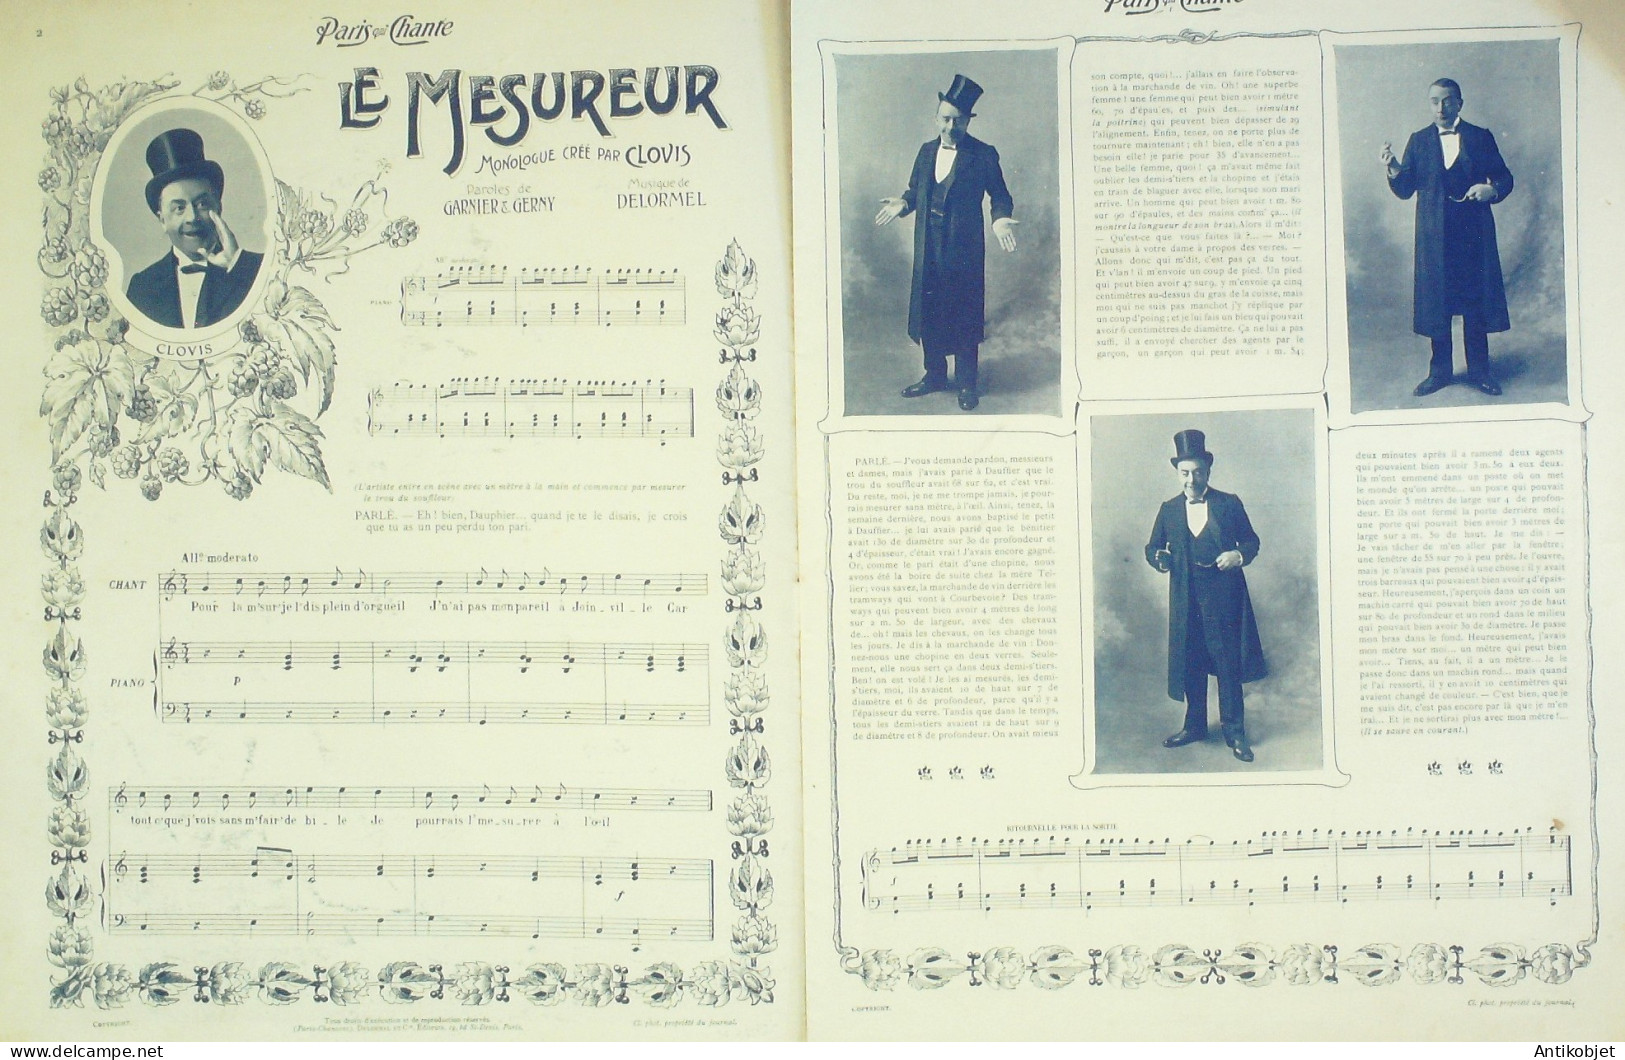 2
Paris qui Chante
LE MESUREUR
MONOLOGUE CRÉÉ PAR CLOVIS
Paroles de
GARNIER & GERNY
Musique de
DELORMEL
CLOVIS
PIANO
(L'artiste entre en scène avec un mètre à la main et commence par mesurer
le trou du souffleur)
PARLÉ. — Eh! bien, Dauphier... quand je te le disais, je crois
que tu as un peu perdu ton pari.
All° moderato
CHANT
Pour la m'sur' je l'dis plein d'orgueil J'n'ai pas mon pareil à Join _ vil _ le Car
PIANO
p
tout c'que j'vois sans m'fair' de bi _ le Je pourrais l'me _ su _ rer à l'œil
f
COPYRIGHT.
Tous droits d'exécution et de reproduction réservés.
Cl. phot. propriété du journal.
Paris qui Chante
son compte, quoi!... j'allais en faire l'observa-
tion à la marchande de vin. Oh! une superbe
femme! une femme qui peut bien avoir 1 mètre
60, 70 d'épaules, et puis des... (simulant
la poitrine) qui peuvent bien dépasser de 29
l'alignement. Enfin, tenez, on ne porte plus de
tournure maintenant; eh! bien, elle n'en a pas
besoin elle! je parie pour 35 d'avancement...
Une belle femme, quoi! ça m'avait même fait
oublier les demi-s'tiers et la chopine et j'étais
en train de blaguer avec elle, lorsque son mari
arrive. Un homme qui peut bien avoir 1 m. 80
sur 90 d'épaules, et des mains comm' ça... (il
montre la longueur de son bras). Alors il m'dit:
— Qu'est-ce que vous faites là?... — Moi?
j'causais à votre dame à propos des verres. —
Allons donc qui m'dit, c'est pas ça du tout.
Et v'lan! il m'envoie un coup de pied. Un pied
qui peut bien avoir 47 sur 9, y m'envoie ça cinq
centimètres au-dessus du gras de la cuisse, mais
moi qui ne suis pas manchot j'y réplique par
un coup d'poing; et je lui fais un bleu qui pouvait
avoir 6 centimètres de diamètre. Ça ne lui a pas
suffi, il a envoyé chercher des agents par le
garçon, un garçon qui peut avoir 1 m. 54;
PARLÉ. — J'vous demande pardon, messieurs
et dames, mais j'avais parié à Dauffier que le
trou du souffleur avait 68 sur 62, et c'est vrai.
Du reste, moi, je ne me trompe jamais, je pour-
rais mesurer sans mètre, à l'œil. Ainsi, tenez, la
semaine dernière, nous avons baptisé le petit
à Dauffier... je lui avais parié que le bénitier
avait 130 de diamètre sur 30 de profondeur et
4 d'épaisseur, c'était vrai! J'avais encore gagné.
Or, comme le pari était d'une chopine, nous
avons été la boire de suite chez la mère Tel-
lier; vous savez, la marchande de vin derrière les
tramways qui vont à Courbevoie? Des tram-
ways qui peuvent bien avoir 4 mètres de long
sur 2 m. 50 de largeur, avec des chevaux
de... oh! mais les chevaux, on les change tous
les jours. Je dis à la marchande de vin: Don-
nez-nous une chopine en deux verres. Seule-
ment, elle nous sert ça dans deux demi-s'tiers.
Ben! on est volé! Je les ai mesurés, les demi-
s'tiers, moi, ils avaient 10 de haut sur 7 de
diamètre et 6 de profondeur, parce qu'il y a
l'épaisseur du verre. Tandis que dans le temps,
tous les demi-stiers avaient 12 de haut sur 9
de diamètre et 8 de profondeur. On avait mieux
deux minutes après il a ramené deux agents
qui pouvaient bien avoir 3 m. 50 à eux deux.
Ils m'ont emmené dans un poste où on met
le monde qu'on arrête... un poste qui pouvait
bien avoir 5 mètres de large sur 4 de profon-
deur. Et ils ont fermé la porte derrière moi;
une porte qui pouvait bien avoir 3 mètres de
large sur 2 m. 50 de haut. Je me dis: —
Je vais tâcher de m'en aller par la fenêtre;
une fenêtre de 55 sur 70 à peu près. Je l'ouvre,
mais je n'avais pas pensé à une chose: il y avait
trois barreaux qui pouvaient bien avoir 4 d'épais-
seur. Heureusement, j'aperçois dans un coin un
machin carré qui pouvait bien avoir 70 de haut
sur 80 de profondeur et un rond dans le milieu
qui pouvait bien avoir 30 de diamètre. Je passe
mon bras dans le fond. Heureusement, j'avais
mon mètre sur moi... un mètre qui peut bien
avoir... Tiens, au fait, il a un mètre... Je le
passe donc dans un machin rond... mais quand
je l'ai ressorti, il y en avait 10 centimètres qui
avaient changé de couleur. — C'est bien, que je
me suis dit, c'est pas encore par là que je m'en
irai... Et je ne sortirai plus avec mon mètre!...
(Il se sauve en courant.)
RITOURNELLE POUR LA SORTIE
f
COPYRIGHT.
Cl. phot. propriété du journal.
Antikobjet